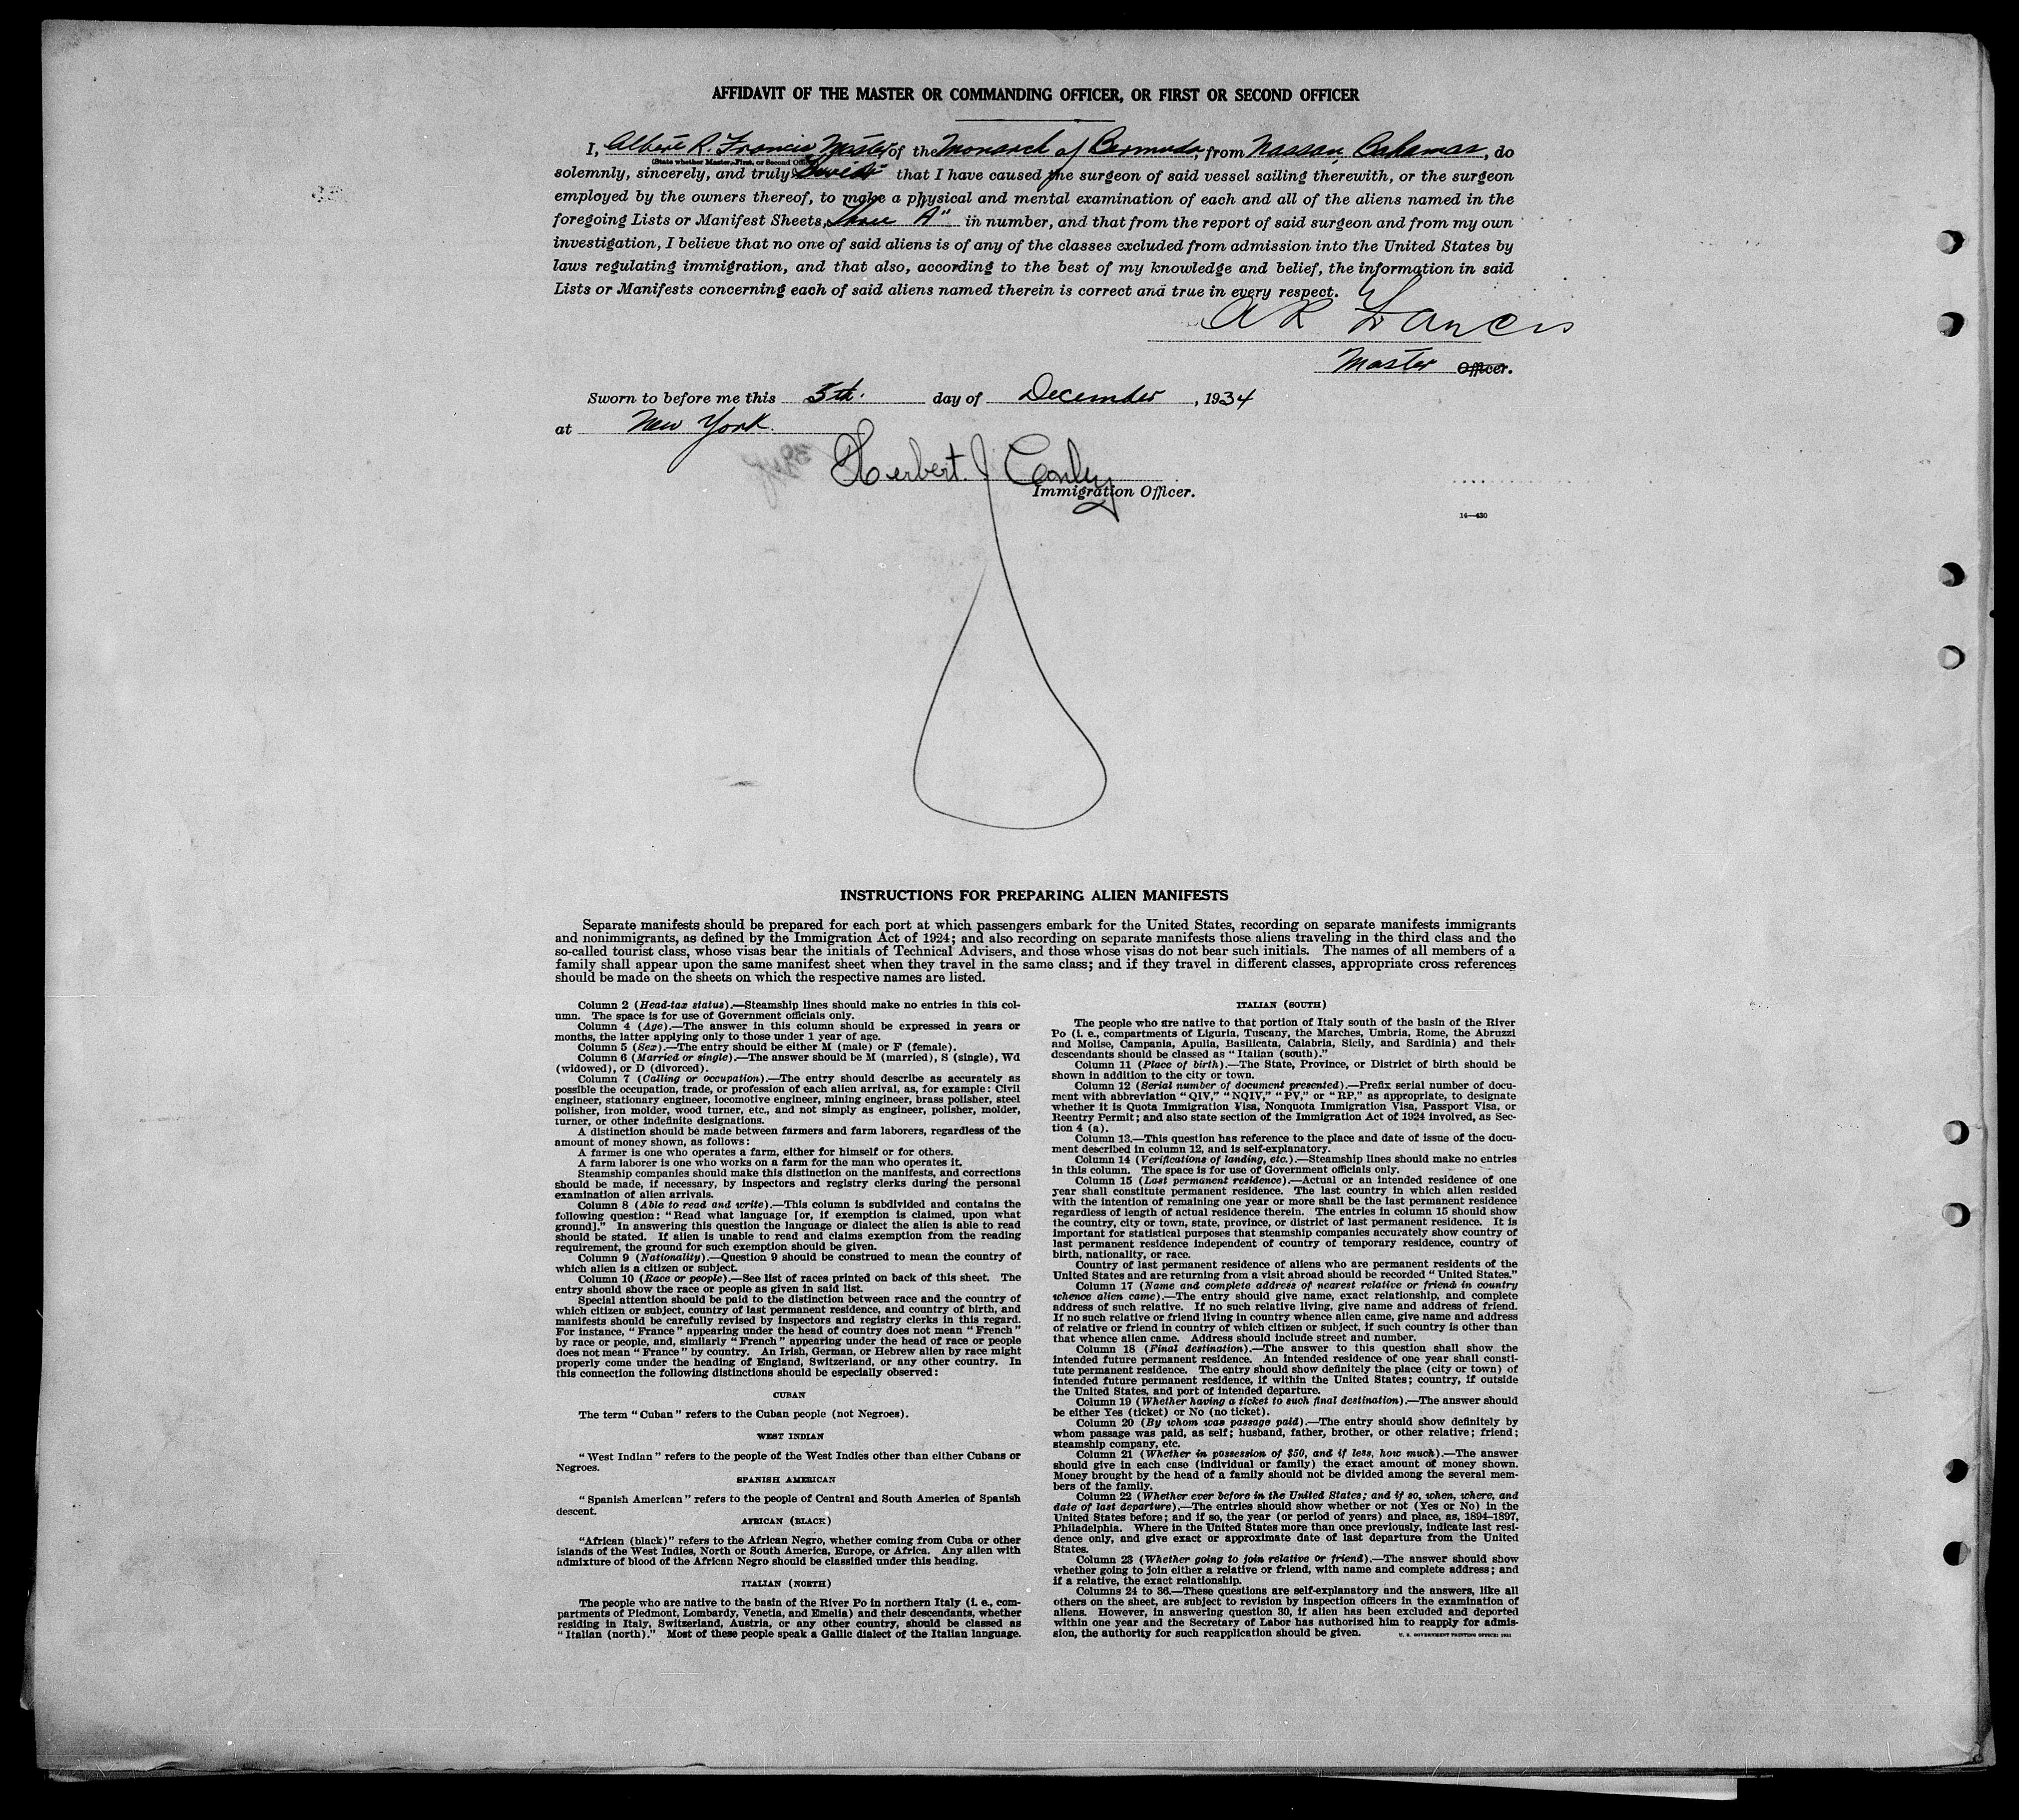 AFFIDAVIT OF THE MASTER OR COMMANDING OFFICER, OR FIRST OR SECOND OFFICER
I, Albert R. Francis, Master of the Monarch of Bermuda, from Nassau, Bahamas, do
(State whether Master, First, or Second Officer)
solemnly, sincerely, and truly swear that I have caused the surgeon of said vessel sailing therewith, or the surgeon
employed by the owners thereof, to make a physical and mental examination of each and all of the aliens named in the
foregoing Lists or Manifest Sheets, three "A" in number, and that from the report of said surgeon and from my own
investigation, I believe that no one of said aliens is of any of the classes excluded from admission into the United States by
laws regulating immigration, and that also, according to the best of my knowledge and belief, the information in said
Lists or Manifests concerning each of said aliens named therein is correct and true in every respect.
A R Francis
Master Officer.
Sworn to before me this 5th. day of December, 1934
at New York.
Herbert J Conley
Immigration Officer.
14—430
INSTRUCTIONS FOR PREPARING ALIEN MANIFESTS
Separate manifests should be prepared for each port at which passengers embark for the United States, recording on separate manifests immigrants
and nonimmigrants, as defined by the Immigration Act of 1924; and also recording on separate manifests those aliens traveling in the third class and the
so-called tourist class, whose visas bear the initials of Technical Advisers, and those whose visas do not bear such initials. The names of all members of a
family shall appear upon the same manifest sheet when they travel in the same class; and if they travel in different classes, appropriate cross references
should be made on the sheets on which the respective names are listed.
Column 2 (Head-tax status).—Steamship lines should make no entries in this col-
umn. The space is for use of Government officials only.
Column 4 (Age).—The answer in this column should be expressed in years or
months, the latter applying only to those under 1 year of age.
Column 5 (Sex).—The entry should be either M (male) or F (female).
Column 6 (Married or single).—The answer should be M (married), S (single), Wd
(widowed), or D (divorced).
Column 7 (Calling or occupation).—The entry should describe as accurately as
possible the occupation, trade, or profession of each alien arrival, as, for example: Civil
engineer, stationary engineer, locomotive engineer, mining engineer, brass polisher, steel
polisher, iron molder, wood turner, etc., and not simply as engineer, polisher, molder,
turner, or other indefinite designations.
A distinction should be made between farmers and farm laborers, regardless of the
amount of money shown, as follows:
A farmer is one who operates a farm, either for himself or for others.
A farm laborer is one who works on a farm for the man who operates it.
Steamship companies should make this distinction on the manifests, and corrections
should be made, if necessary, by inspectors and registry clerks during the personal
examination of alien arrivals.
Column 8 (Able to read and write).—This column is subdivided and contains the
following question: "Read what language [or, if exemption is claimed, upon what
ground]." In answering this question the language or dialect the alien is able to read
should be stated. If alien is unable to read and claims exemption from the reading
requirement, the ground for such exemption should be given.
Column 9 (Nationality).—Question 9 should be construed to mean the country of
which alien is a citizen or subject.
Column 10 (Race or people).—See list of races printed on back of this sheet. The
entry should show the race or people as given in said list.
Special attention should be paid to the distinction between race and the country of
which citizen or subject, country of last permanent residence, and country of birth, and
manifests should be carefully revised by inspectors and registry clerks in this regard.
For instance, "France" appearing under the head of country does not mean "French"
by race or people, and, similarly "French" appearing under the head of race or people
does not mean "France" by country. An Irish, German, or Hebrew alien by race might
properly come under the heading of England, Switzerland, or any other country. In
this connection the following distinctions should be especially observed:
CUBAN
The term "Cuban" refers to the Cuban people (not Negroes).
WEST INDIAN
"West Indian" refers to the people of the West Indies other than either Cubans or
Negroes.
SPANISH AMERICAN
"Spanish American" refers to the people of Central and South America of Spanish
descent.
AFRICAN (BLACK)
"African (black)" refers to the African Negro, whether coming from Cuba or other
islands of the West Indies, North or South America, Europe, or Africa. Any alien with
admixture of blood of the African Negro should be classified under this heading.
ITALIAN (NORTH)
The people who are native to the basin of the River Po in northern Italy (i. e., com-
partments of Piedmont, Lombardy, Venetia, and Emelia) and their descendants, whether
residing in Italy, Switzerland, Austria, or any other country, should be classed as
"Italian (north)." Most of these people speak a Gallic dialect of the Italian language.
ITALIAN (SOUTH)
The people who are native to that portion of Italy south of the basin of the River
Po (i. e., compartments of Liguria, Tuscany, the Marches, Umbria, Rome, the Abruzzi
and Molise, Campania, Apulia, Basilicata, Calabria, Sicily, and Sardinia) and their
descendants should be classed as "Italian (south)."
Column 11 (Place of birth).—The State, Province, or District of birth should be
shown in addition to the city or town.
Column 12 (Serial number of document presented).—Prefix serial number of docu-
ment with abbreviation "QIV," "NQIV," "PV," or "RP," as appropriate, to designate
whether it is Quota Immigration Visa, Nonquota Immigration Visa, Passport Visa, or
Reentry Permit; and also state section of the Immigration Act of 1924 involved, as Sec-
tion 4 (a).
Column 13.—This question has reference to the place and date of issue of the docu-
ment described in column 12, and is self-explanatory.
Column 14 (Verifications of landing, etc.).—Steamship lines should make no entries
in this column. The space is for use of Government officials only.
Column 15 (Last permanent residence).—Actual or an intended residence of one
year shall constitute permanent residence. The last country in which alien resided
with the intention of remaining one year or more shall be the last permanent residence
regardless of length of actual residence therein. The entries in column 15 should show
the country, city or town, state, province, or district of last permanent residence. It is
important for statistical purposes that steamship companies accurately show country of
last permanent residence independent of country of temporary residence, country of
birth, nationality, or race.
Country of last permanent residence of aliens who are permanent residents of the
United States and are returning from a visit abroad should be recorded "United States."
Column 17 (Name and complete address of nearest relative or friend in country
whence alien came).—The entry should give name, exact relationship, and complete
address of such relative. If no such relative living, give name and address of friend.
If no such relative or friend living in country whence alien came, give name and address
of relative or friend in country of which citizen or subject, if such country is other than
that whence alien came. Address should include street and number.
Column 18 (Final destination).—The answer to this question shall show the
intended future permanent residence. An intended residence of one year shall consti-
tute permanent residence. The entry should show definitely the place (city or town) of
intended future permanent residence, if within the United States; country, if outside
the United States, and port of intended departure.
Column 19 (Whether having a ticket to such final destination).—The answer should
be either Yes (ticket) or No (no ticket).
Column 20 (By whom was passage paid).—The entry should show definitely by
whom passage was paid, as self; husband, father, brother, or other relative; friend;
steamship company, etc.
Column 21 (Whether in possession of $50, and if less, how much).—The answer
should give in each case (individual or family) the exact amount of money shown.
Money brought by the head of a family should not be divided among the several mem-
bers of the family.
Column 22 (Whether ever before in the United States; and if so, when, where, and
date of last departure).—The entries should show whether or not (Yes or No) in the
United States before; and if so, the year (or period of years) and place, as, 1894–1897,
Philadelphia. Where in the United States more than once previously, indicate last resi-
dence only, and give exact or approximate date of last departure from the United
States.
Column 23 (Whether going to join relative or friend).—The answer should show
whether going to join either a relative or friend, with name and complete address; and
if a relative, the exact relationship.
Columns 24 to 36.—These questions are self-explanatory and the answers, like all
others on the sheet, are subject to revision by inspection officers in the examination of
aliens. However, in answering question 30, if alien has been excluded and deported
within one year and the Secretary of Labor has authorized him to reapply for admis-
sion, the authority for such reapplication should be given.
U. S. GOVERNMENT PRINTING OFFICE: 1931